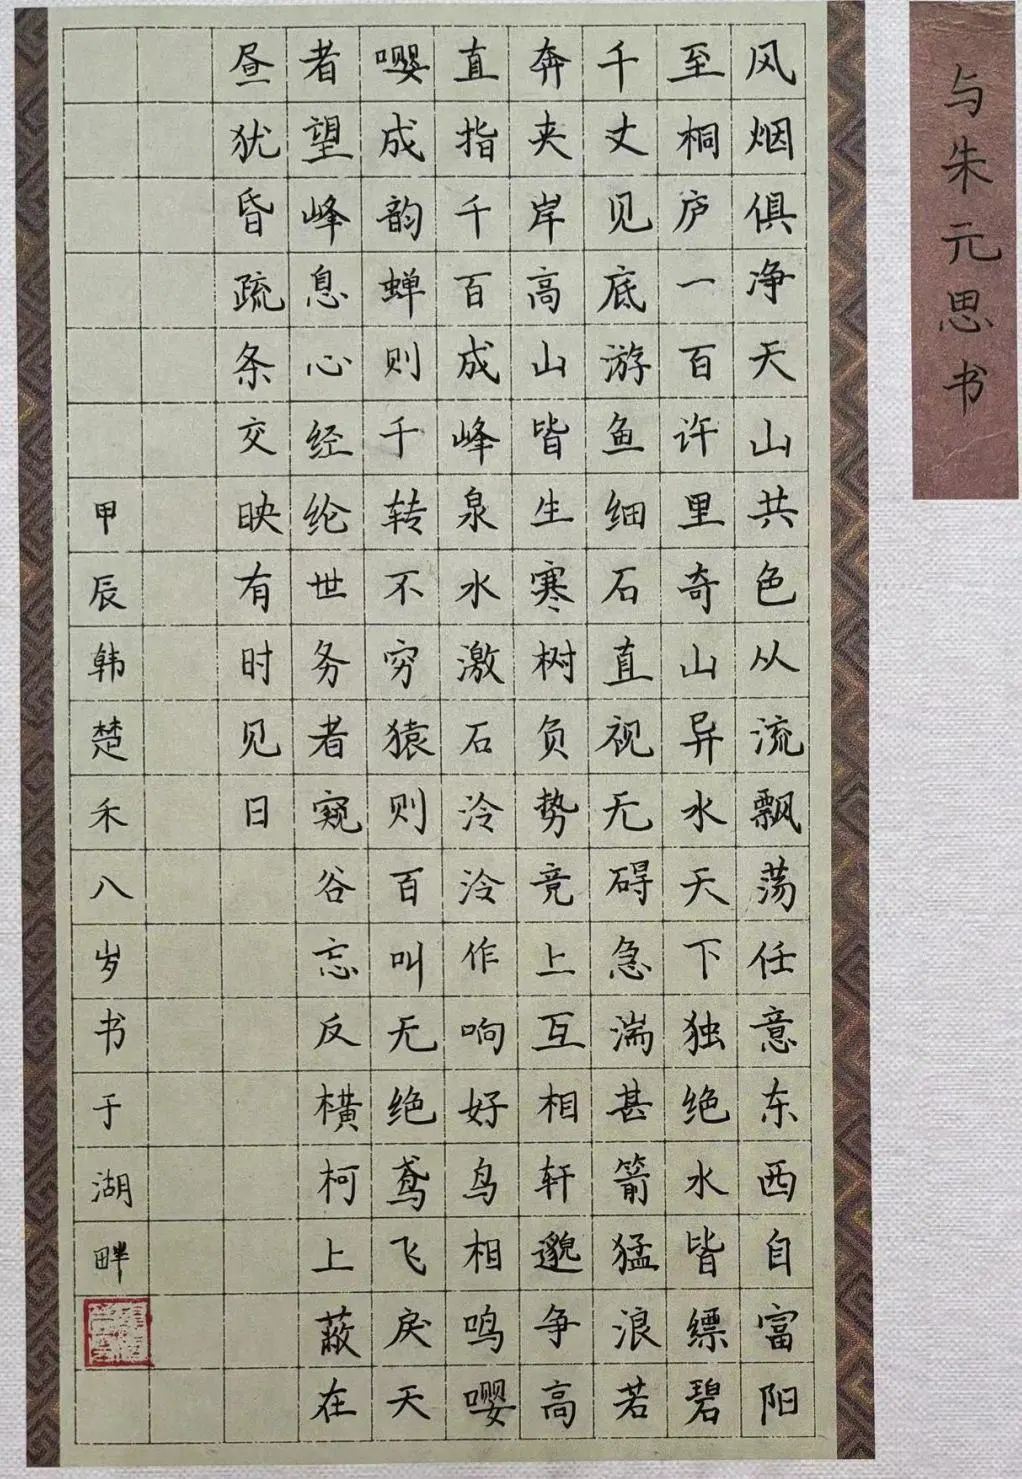 与朱元思书
风烟俱净天山共色从流飘荡任意东西自富阳
至桐庐一百许里奇山异水天下独绝水皆缥碧
千丈见底游鱼细石直视无碍急湍甚箭猛浪若
奔夹岸高山皆生寒树负势竞上互相轩邈争高
直指千百成峰泉水激石泠泠作响好鸟相鸣嘤
嘤成韵蝉则千转不穷猿则百叫无绝鸢飞戾天
者望峰息心经纶世务者窥谷忘反横柯上蔽在
昼犹昏疏条交映有时见日
甲辰韩楚禾八岁书于湖畔